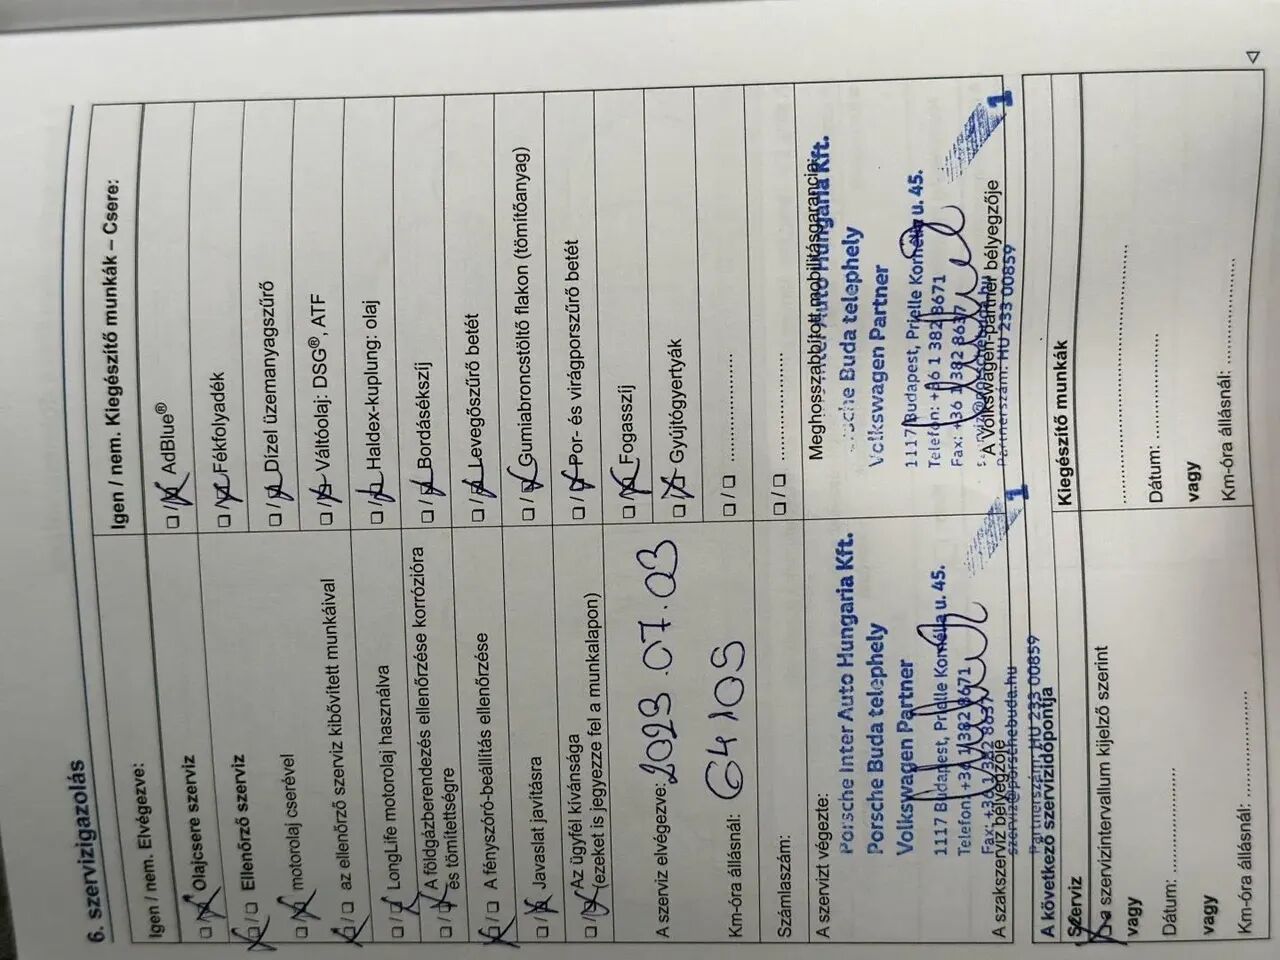 6. szervizigazolás
Igen / nem. Elvégezve:
☐ / ☒ Olajcsere szerviz
☒ / ☐ Ellenőrző szerviz
☐ / ☒ motorolaj cserével
☒ / ☐ az ellenőrző szerviz kibővített munkáival
☐ / ☒ LongLife motorolaj használva
☐ / ☒ A földgázberendezés ellenőrzése korrózióra
és tömítettségre
☒ / ☐ A fényszóró-beállítás ellenőrzése
☐ / ☒ Javaslat javításra
☐ / ☒ Az ügyfél kívánsága
(ezeket is jegyezze fel a munkalapon)
A szerviz elvégezve: 2023.07.03
Km-óra állásnál: 64105
Számlaszám:
A szervizt végezte:
Porsche Inter Auto Hungaria Kft.
Porsche Buda telephely
Volkswagen Partner
1117 Budapest, Prielle Kornélia u. 45.
Telefon: +36 1 382 8671
Fax: +36 1 382 8637
szerviz@porschebuda.hu
Partnerszám: HU 233 00859
1
A szakszerviz bélyegzője
Igen / nem. Kiegészítő munkák – Csere:
☐ / ☒ AdBlue®
☐ / ☒ Fékfolyadék
☐ / ☒ Dízel üzemanyagszűrő
☐ / ☒ Váltóolaj: DSG®, ATF
☐ / ☒ Haldex-kuplung: olaj
☐ / ☒ Bordásékszíj
☐ / ☒ Levegőszűrő betét
☐ / ☒ Gumiabroncstöltő flakon (tömítőanyag)
☐ / ☒ Por- és virágporszűrő betét
☐ / ☒ Fogasszíj
☐ / ☒ Gyújtógyertyák
☐ / ☐ ....................
☐ / ☐ ....................
Meghosszabbított mobilitásgarancia:
Auto Hungaria Kft.
Porsche Buda telephely
Volkswagen Partner
1117 Budapest, Prielle Kornélia u. 45.
Telefon: +36 1 382 8671
Fax: +36 1 382 8637
Partnerszám: HU 233 00859
1
A Volkswagen-partner bélyegzője
A következő szervizidőpontja
Szerviz
☒ a szervizintervallum kijelző szerint
vagy
Dátum: ....................
vagy
Km-óra állásnál: ....................
Kiegészítő munkák
..............................
Dátum: ....................
vagy
Km-óra állásnál: ....................